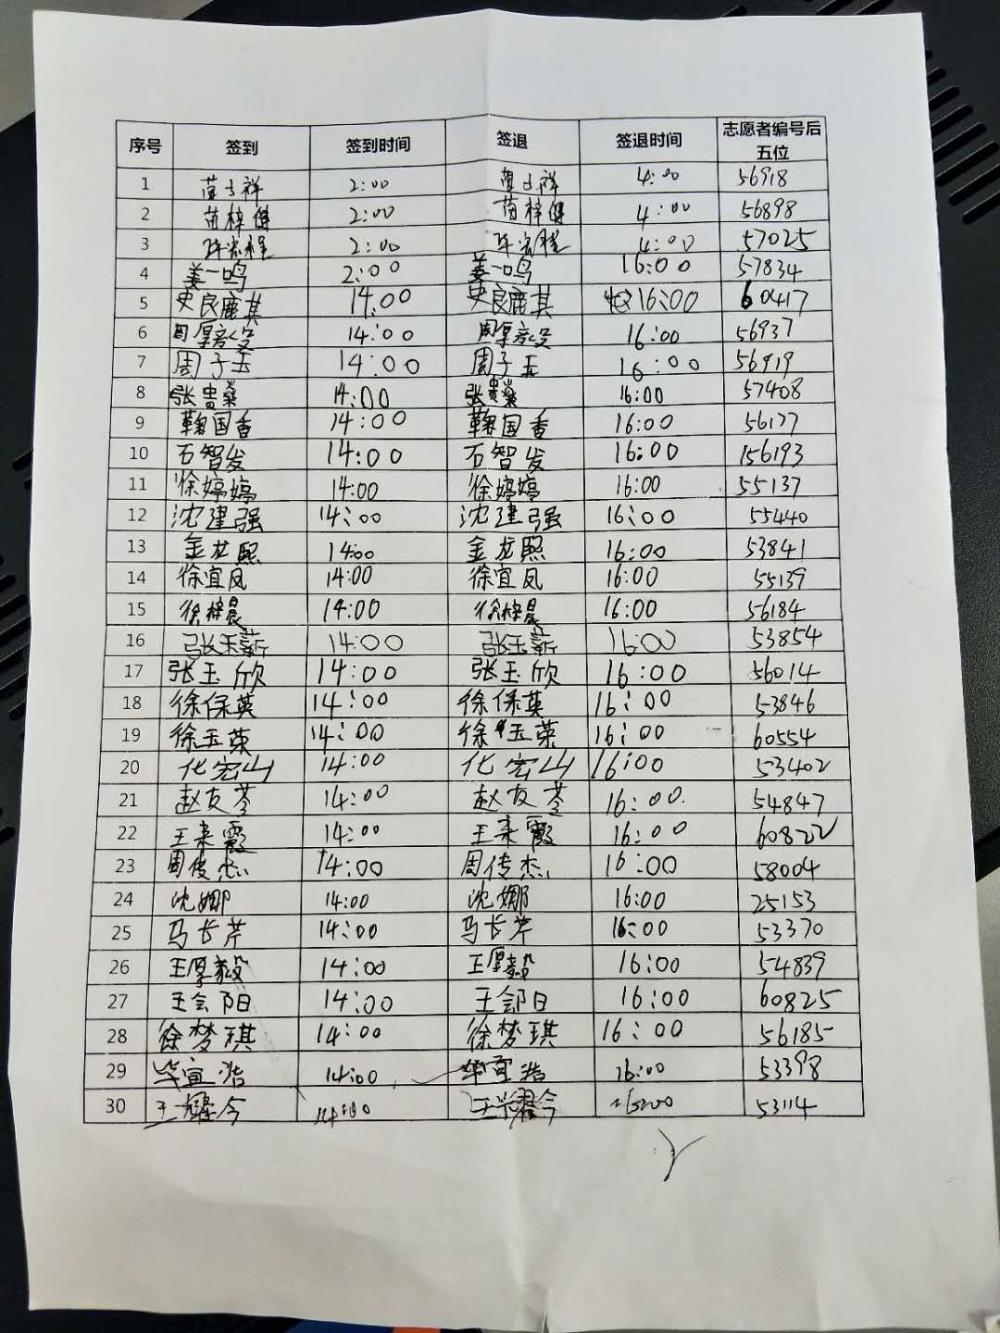 序号 签到 签到时间 签退 签退时间 志愿者编号后五位
1 2:00 4:00 56918
2 苗梓健 2:00 苗梓健 4:00 56898
3 2:00 4:00 57025
4 姜一鸣 2:00 姜一鸣 16:00 57834
5 史良鹿其 14:00 史良鹿其 16:00 60417
6 14:00 16:00 56937
7 周子玉 14:00 周子玉 16:00 56919
8 张贵 14:00 张贵 16:00 57408
9 鞠国香 14:00 鞠国香 16:00 56177
10 石智发 14:00 石智发 16:00 156193
11 徐婷婷 14:00 徐婷婷 16:00 55137
12 沈建强 14:00 沈建强 16:00 55440
13 金龙熙 14:00 金龙熙 16:00 53841
14 徐宜凤 14:00 徐宜凤 16:00 55139
15 徐梓晨 14:00 徐梓晨 16:00 56184
16 张玉薪 14:00 张玉薪 16:00 53854
17 张玉欣 14:00 张玉欣 16:00 56014
18 徐保英 14:00 徐保英 16:00 53846
19 徐玉荣 14:00 徐玉荣 16:00 60554
20 化宏山 14:00 化宏山 16:00 53402
21 赵友苓 14:00 赵友苓 16:00 54847
22 王来霞 14:00 王来霞 16:00 60822
23 周传杰 14:00 周传杰 16:00 58004
24 沈娜 14:00 沈娜 16:00 25153
25 马长芹 14:00 马长芹 16:00 53370
26 王厚毅 14:00 王厚毅 16:00 54839
27 王会阳 14:00 王会阳 16:00 60825
28 徐梦琪 14:00 徐梦琪 16:00 56185
29 毕宜浩 14:00 毕宜浩 16:00 53398
30 14:00 53114